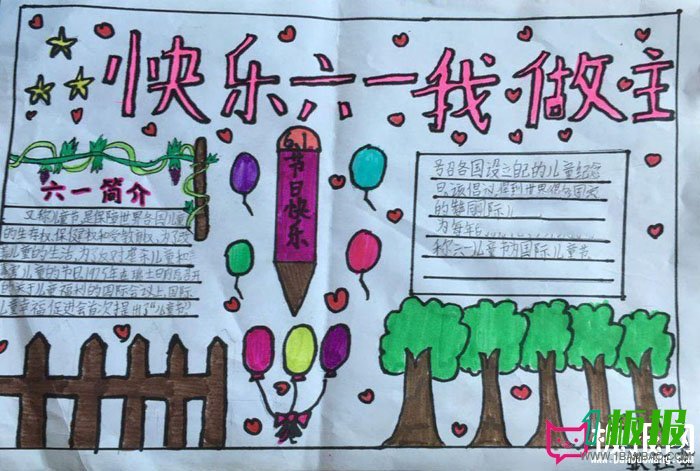 快乐六一我做主
六一简介
又称儿童节,是保障世界各国儿童
的生存权、保健权和受教育权、为了改
善儿童的生活,为了反对虐杀儿童和
儿童的节日1925年在瑞士日内瓦召开
的关于儿童福利的国际会议上国际
儿童幸福促进会首次提出了"儿童节
6.1
节日快乐
号召各国设立自己的儿童纪念
日,该倡议得到世界很多国家
的
为每年
称六一儿童节为国际儿童节
板报
www.1BANBAO.COM